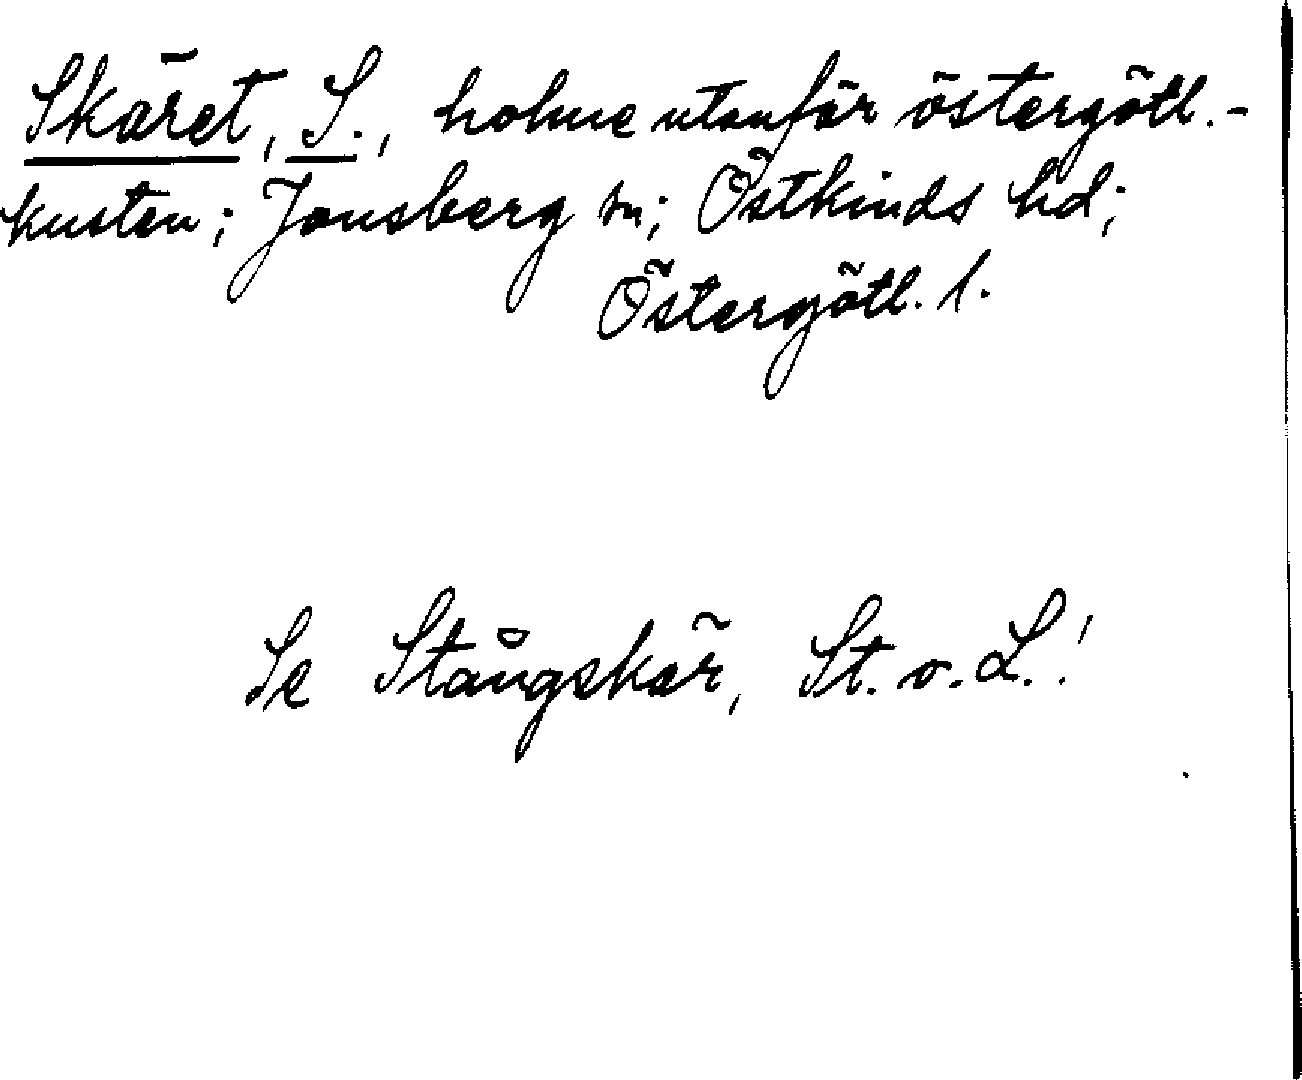 Skäret, S., holme utanför östergötl.-
kusten; Jonsberg sn; Östkinds hd;
Östergötl. l.
Se Stångskär, St. o. L.!